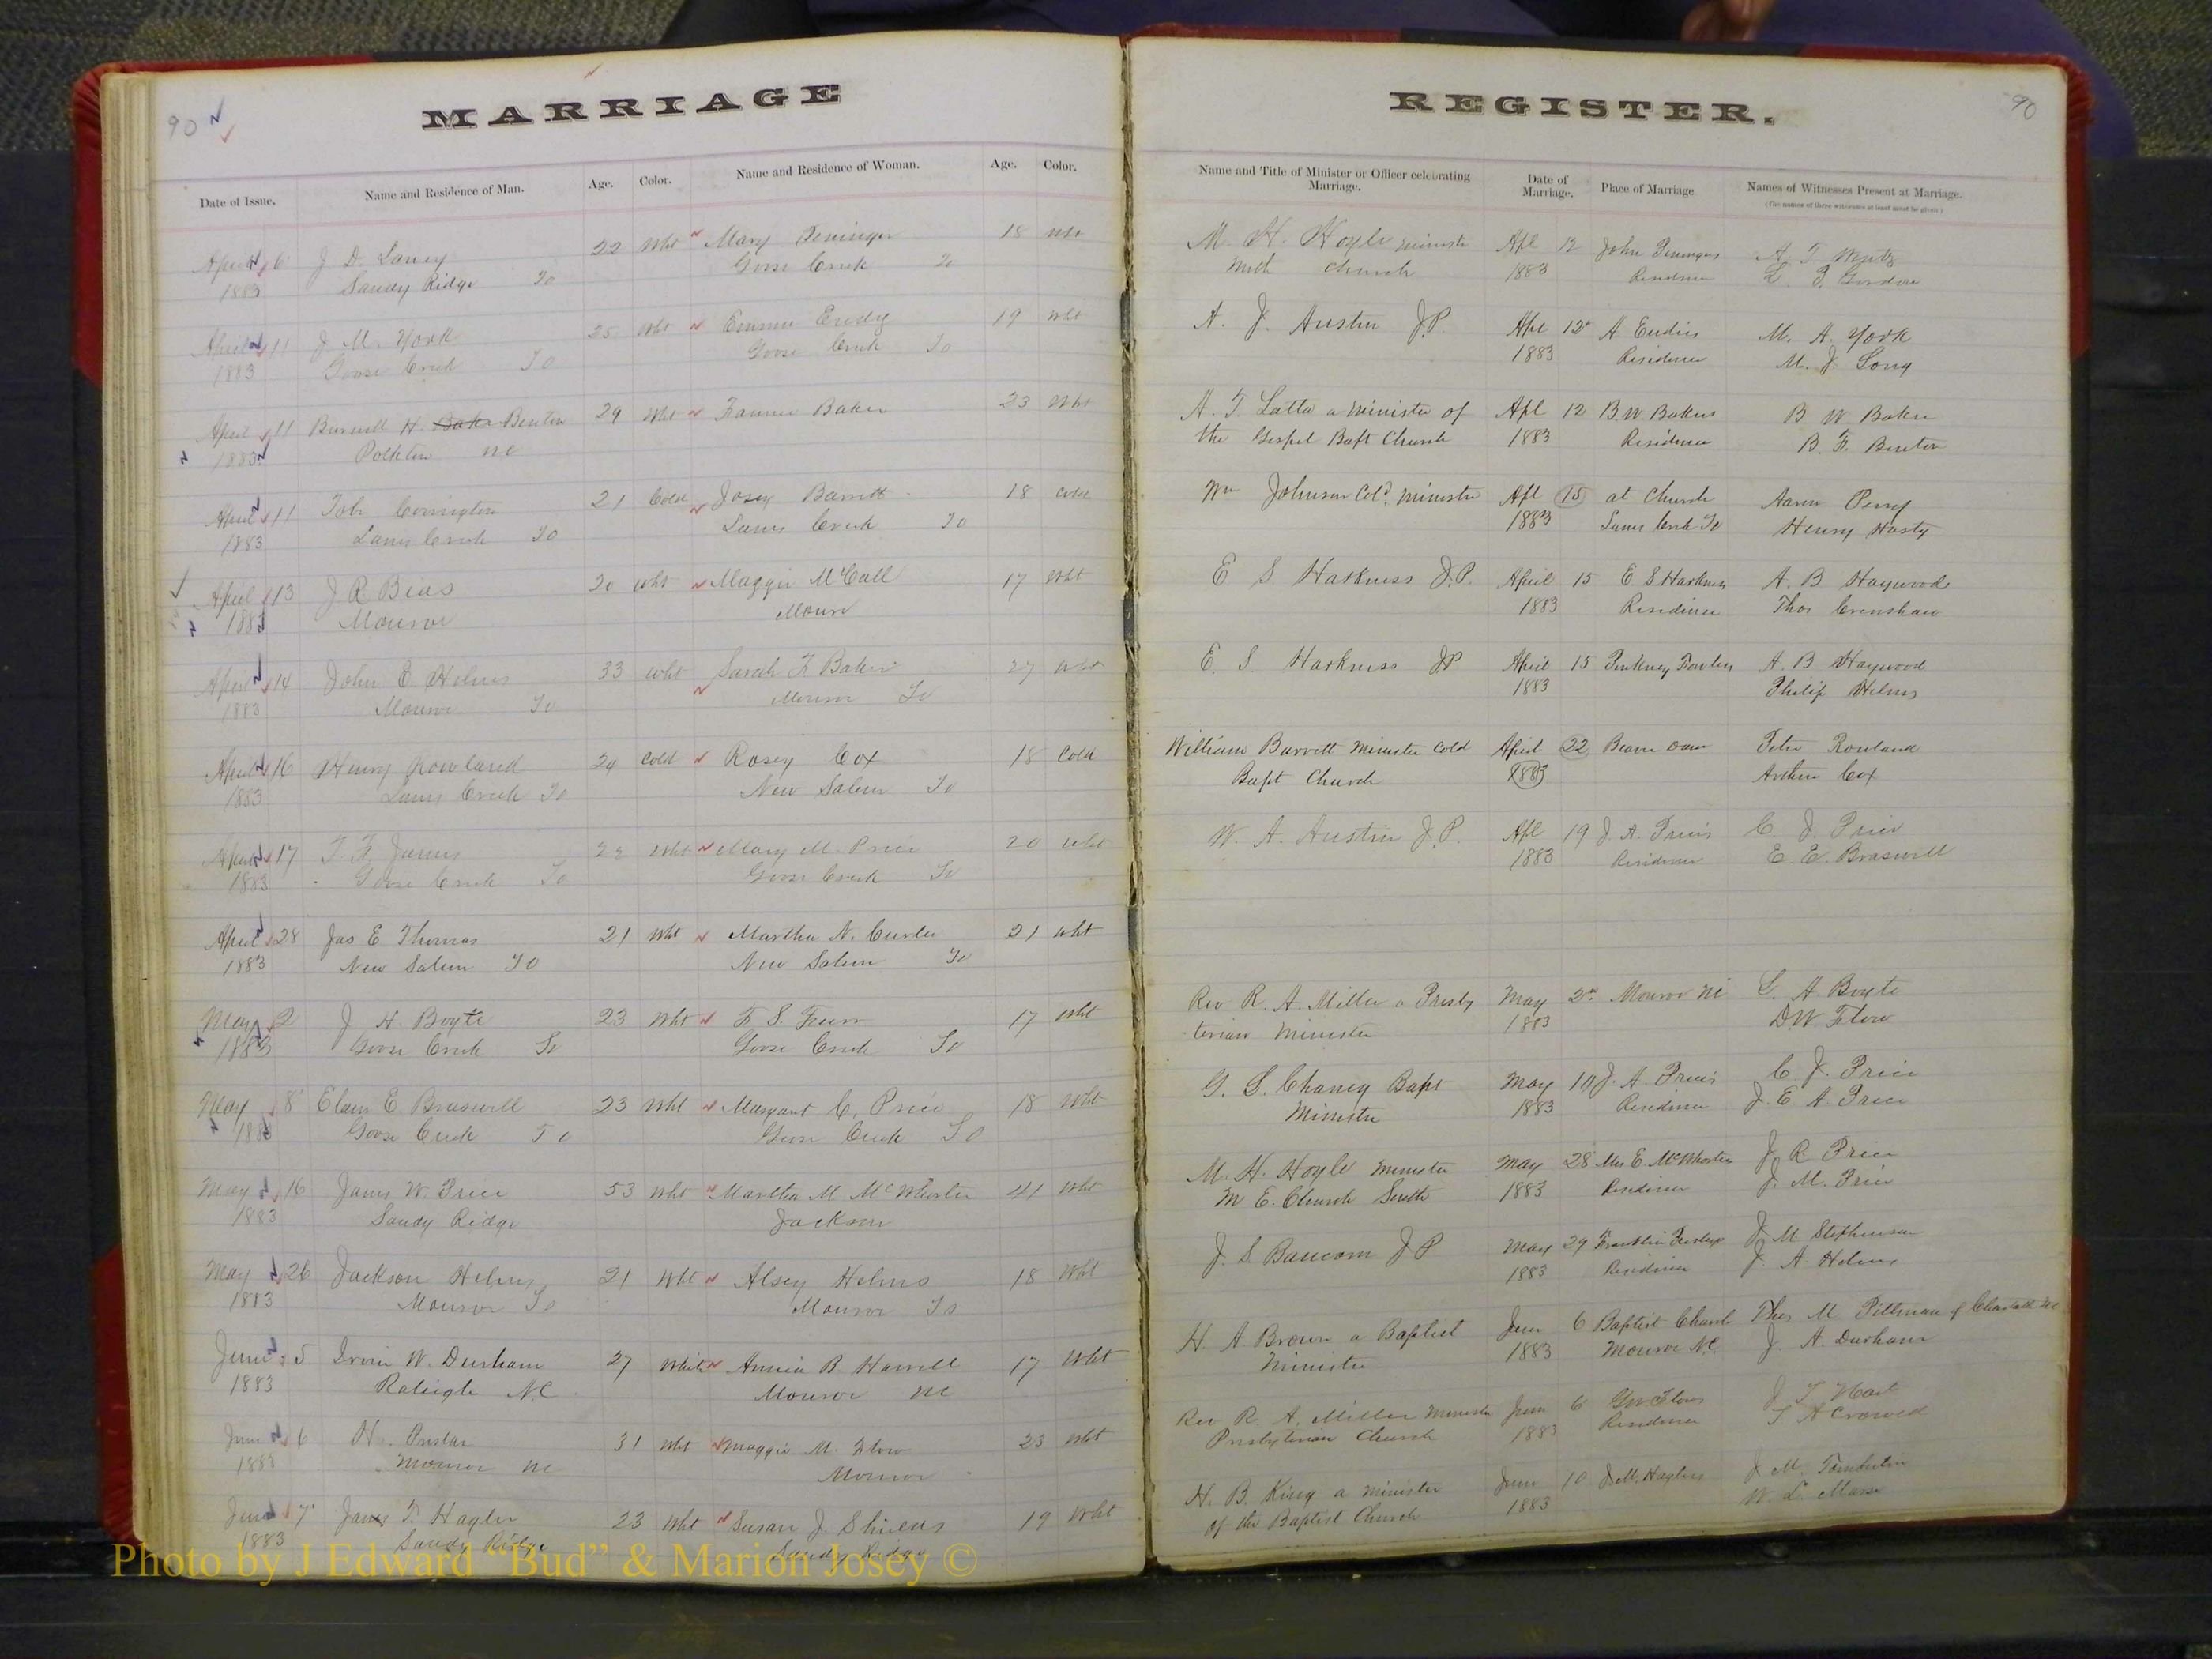 90
MARRIAGE
Date of Issue. Name and Residence of Man. Age. Color. Name and Residence of Woman. Age. Color.
April 6 J D. Laney 22 Wht Mary 18
1883 Sandy Ridge To Goose Creek To
April 11 J. M. York 25 Wht Emma Eudy 19 Wht
1883 Goose Creek To Goose Creek To
April 11 Burwell H. Baker Benton 29 Wht Fannie Baker 23 Wht
1883 Polkton NC
April 11 Covington 21 Cold Josey Barrett 18 Cold
1883 Lanes Creek To Lanes Creek To
April 13 J R Bias 20 Wht Maggie McCall 17 Wht
1883 Monroe Monroe
April 14 John E. Helms 33 Wht Sarah F Baker 27 Wht
1883 Monroe To Monroe To
April 16 Henry Rowland 24 Cold Rosey Cox 18 Cold
1883 Lanes Creek To New Salem To
April 17 T. F. James 22 Wht Mary M. Price 20 Wht
1883 Goose Creek To Goose Creek To
April 28 Jas E Thomas 21 Wht Martha N. Curlee 21 Wht
1883 New Salem To New Salem To
May 2 J H. Boyte 23 Wht F S. 17 Wht
1883 Goose Creek To Goose Creek To
May 8 Elam E. Braswell 23 Wht Margaret C. Price 18 Wht
1883 Goose Creek To Goose Creek To
May 16 James W. Price 53 Wht Martha M McWhorter 41 Wht
1883 Sandy Ridge Jackson
May 26 Jackson Helms 21 Wht Alsey Helms 18 Wht
1883 Monroe To Monroe To
June 5 Irvin W. Durham 27 White Annie B. Harrell 17 Wht
1883 Raleigh N.C. Monroe NC
June 6 31 Wht Maggie M. Flow 23 Wht
1883 Monroe NC Monroe
June 7 James T. Hagler 23 Wht Susan J. 19 Wht
1883 Sandy Ridge Sandy Ridge
REGISTER.
90
Name and Title of Minister or Officer celebrating Marriage. Date of Marriage. Place of Marriage Names of Witnesses Present at Marriage.
(The names of three witnesses at least must be given.)
M. H. Hoyle minister Apl 12 John
Meth Church 1883 Residence L. P. Gordon
A. J. Austin J.P. Apl 12 A Eudies M. A. York
1883 Residence M. J Long
A. T. Latta a minister of Apl 12 B. W Bakers B W Baker
the Gospel Bapt Church 1883 Residence B. F. Benton
Wm Johnson Cold minister Apl 15 at Church Aaron Perry
1883 Lanes Creek To Henry Hasty
E S Harkness J.P. April 15 E S Harkness A. B Haywood
1883 Residence Thos Crenshaw
E. S. Harkness JP April 15 Pinkney Fowlers A. B Haywood
1883 Philip Helms
William Barrett Minister Cold April 22 Beaver Dam Peter Rowland
Bapt Church 1883 Cox
W. A. Austin J.P. Apl 19 J. A. Prices C J. Price
1883 Residence E. E. Braswell
Rev R. A. Miller a Presby May 2nd Monroe NC A Boyte
terian Minister 1883 D.W Flow
G. L. Chaney Bapt May 10 J. A. Prices C. J. Price
Minister 1883 Residence J. E A. Price
M. H. Hoyle Minister May 28 Mrs E. McWhorter J. R Price
M E. Church South 1883 Residence J. M. Price
J. S Baucom J P May 29 Franklin J M Stephenson
1883 Residence J. A Helms
H. A Brown a Baptist June 6 Baptist Church Thos M. Pittman of Charlotte NC
Minister 1883 Monroe N.C. J. A. Durham
Rev R. A. Miller Minister June 6 Flows J T Hart
Presbyterian Church 1883 Residence
H. B. King a minister June 10 J M. Haglers J M.
of the Baptist Church 1883 W. L.
Photo by J Edward “Bud” & Marion Josey ©